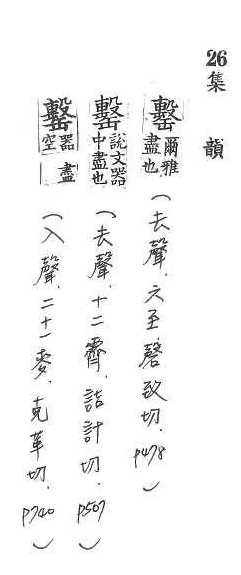 26集韻
罊爾雅盡也（去聲．六至．磬致切．p478）
罊說文器中盡也（去聲．十二霽．詰計切．p507）
罊器空盡（入聲．二十一麥．克革切．p740）